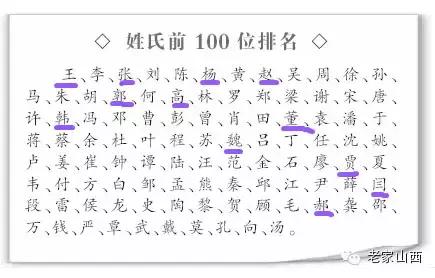 ◇ 姓氏前100位排名 ◇
王、李、张、刘、陈、杨、黄、赵、吴、周、徐、孙、
马、朱、胡、郭、何、高、林、罗、郑、梁、谢、宋、唐、
许、韩、冯、邓、曹、彭、曾、肖、田、董、袁、潘、于、
蒋、蔡、余、杜、叶、程、苏、魏、吕、丁、任、沈、姚、
卢、姜、崔、钟、谭、陆、汪、范、金、石、廖、贾、夏、
韦、付、方、白、邹、孟、熊、秦、邱、江、尹、薛、闫、
段、雷、侯、龙、史、陶、黎、贺、顾、毛、郝、龚、邵、
万、钱、严、覃、武、戴、莫、孔、向、汤。
老家山西